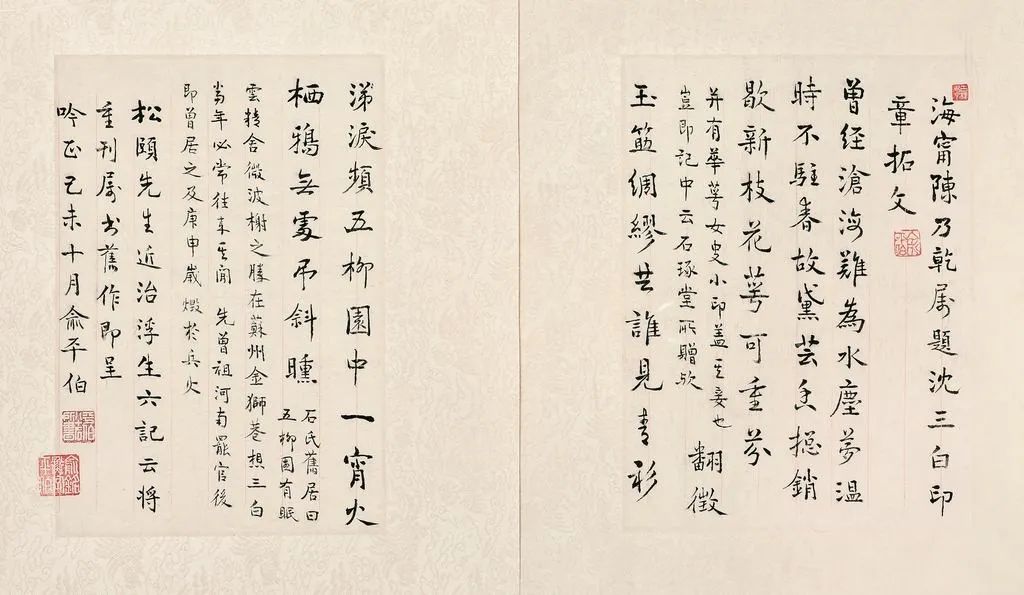 海甯陳乃乾属題沈三白印
章拓文
曾經滄海難為水塵夢溫
時不駐春故黛芸香揔銷
歇新枝花萼可重芬
并有華萼女史小印盖其妾也
豈即記中云石琢堂所贈歟 翻徵
玉綢繆共誰見青衫
涕淚頻五柳園中一宵火
栖鴉無處弔斜曛 石氏舊居曰
五柳園有眠
雲精舍微波榭之勝在蘇州金獅巷想三白
當年必常往来其間 先曾祖河南罷官後
即曾居之及庚申歲燬於兵火
松頤先生近治浮生六記云将
重刊属书舊作即呈
吟正己未十月俞平伯